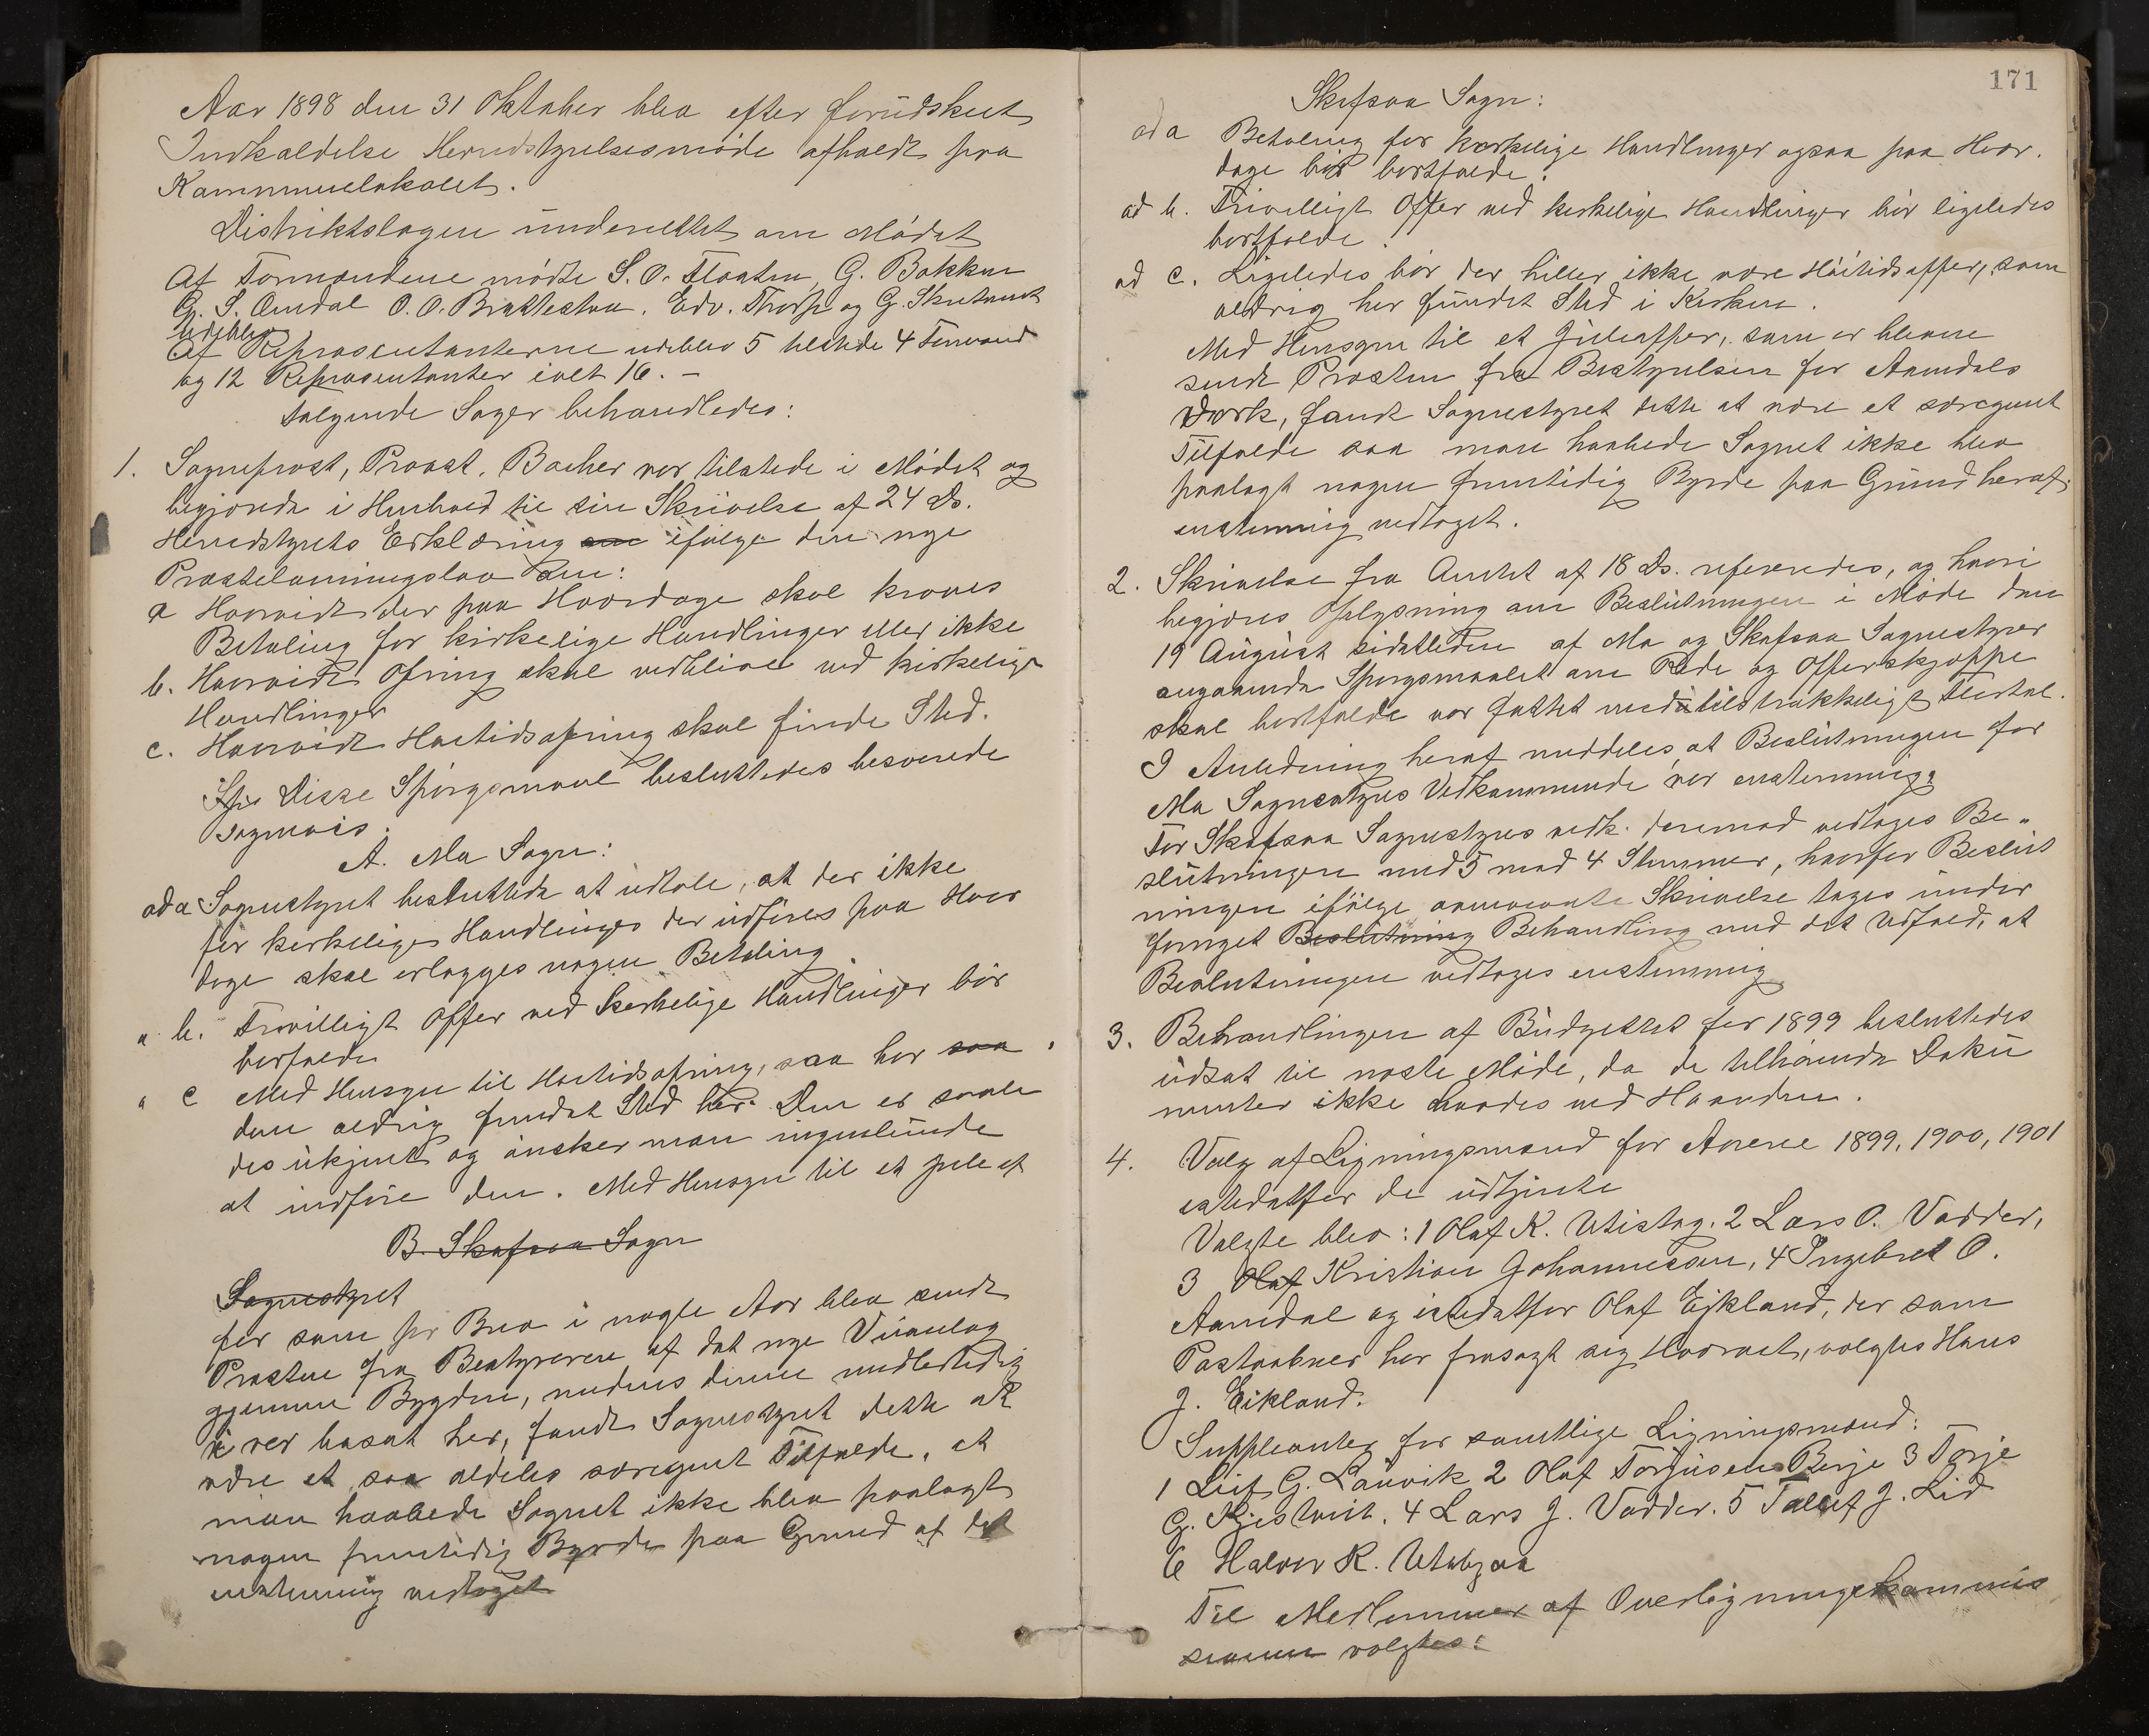 Aar 1898 den 31 Oktober blev efter forudskeet
Indkaldelse Herredstyrelsesmöde afholdt paa
Kommunelokalet.
Distriktslægen underrettet om Mödet
Af Formændene mödte S. O. Flaaten, G. Bakken
G. S. Omdal O. O. Brattestaa. Edv. Thorp og G. Skutveit
udeblev
Af Repræsentanterne udeblev 5 tilstede 4 Formænd
og 12 Repræsentanter ialt 16. –
Fölgende Sager behandledes:
1. Sogneprest, Provst, Bacher var tilstede i Mödet og
begjærede i Henhold til sin Skrivelse af 24 ds.
Herredstyrets Erklæring om ifölge den nye
Præstelønningslov om:
a Hvorvidt der paa Hverdage skal kræves
Betaling for kirkelige Handlinger eller ikke
b. Hvorvidt Ofring skal vedblive ved kirkelige
Handlinger
c. Hvorvidt Høitidsofring skal finde Sted.
Disse Spörgsmaal besluttedes besvarede
sognevis.
A. Mo Sogn:
ad a Sognestyret besluttede at udtale, at der ikke
for kirkelige Handlinger der udföres paa Hver
dage skal erlægges nogen Betaling
" b. Frivilligt Offer ved kirkelige Handlinger bör
borfalde
" c Med Hensyn til Høitidsofring, saa har saa
den aldrig fundet Sted her. Den er saale
des ukjent og önsker man ingenlunde
at indföre den. Med Hensyn til et Juleof
B. Skafsaa Sogn
Sognestyret
fer som pr Brev i nogle Aar blev sendt
Præsten fra Bestyreren af det nyeVærk
gjennem Bygden, medens denne midlertidig
var bosat her, fandt Sognestyret dette at
være et saa aldeles særegent Tilfælde, at
man haabede Sognet ikke blev paalagt
nogen fremtidig Byrde paa Grund af det
enstemmig vedtaget
171
Skafsaa Sogn:
ad a Betaling for kirkelige Handlinger ogsaa paa Hver.
dage bör bortfalde.
ad b. Frivilligt Offer ved kirkelige Handlinger bör ligeledes
bortfalde.
ad c. Ligeledes bör der heller ikke være Höitidsoffer, som
aldrig har fundet Sted i Kirken.
Med Hensyn til et Juleoffer, som er bleven
sendt Præsten fra Bestyrelsen for Aamdals
Værk, fandt Sognestyret dette at være et særegent
Tilfælde saa man haabede Sognet ikke blev
paalagt nogen fremtidig Byrde paa Grund heraf.
enstemmig vedtaget.
2. Skrivelse fra Amtet af 18 ds. refereredes, og hvori
begjæres Oplysning om Beslutningen i Möde den
19 August sidstleden af Mo og Skafsaa Sognestyrer
angaaende Spörgsmaalet om Rede og Offerskjæppe
skal bortfalde var fattet med tilstrækkeligt Flertal.
I Anledning heraf meddeles, at Beslutningen for
Mo Sognestyres Vedkommende var enstemmig.
For Skafsaa Sognestyres vedk. derimod vedtoges Be„
slutningen med 5 mod 4 Stemmer, hvorfor Beslut
ningen ifölge omnævnte Skrivelse tages under
fornyet Beslutning Behandling med det Udfald, at
Beslutningen vedtoges enstemmig
3. Behandlingen af Budgettet for 1899 besluttedes
udsat til næste Möde, da de tilhörende Doku
menter ikke havdes ved Haanden.
4. Valg af Ligningsmænd for Aarene 1899, 1900, 1901
istedetfor de udtjente
Valgte blev: 1 Olaf K. Utistog. 2 Lars O. Vadder,
3 Olaf Kristian Johannessen, 4 Ingebret O.
Aamdal og istedetfor Olaf Eikland, der som
Postaabner har frasagt sig Hvervet, valgtes Hans
J. Eikland.
Suppleanter for samtlige Ligningsmænd:
1 Leif G. Lauvik 2 Olaf Torjusen Berje 3 Torje
G. Kjestveit. 4 Lars J. Vadder. 5 Tallef J. Lid
6 Halvor K. Utabjaa
Til Medlemmer af Overligningskommis
sionen valgtes: